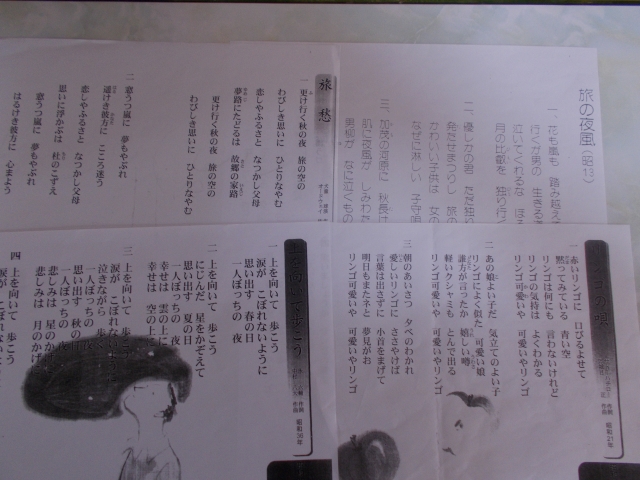 旅の夜風 (昭13)
一、花も嵐も 踏み越え
行くが男の 生きる
泣いてくれるな
月の比叡を 独り行く
二、優しかの君 ただ独
発たせまつりし 旅の
かわいい子供は 女の
なぜに淋しい 子守唄
三、加茂の河原に 秋長け
肌に夜風が しみわた
男柳が なに泣くもの
旅愁
一 更け行く秋の夜 旅の空の
わびしき思いに ひとりなやむ
恋しやふるさと なつかし父母
夢路にたどるは 故郷の家路
更け行く秋の夜 旅の空の
わびしき思いに ひとりなやむ
二 窓うつ嵐に 夢もやぶれ
遥けき彼方に こころ迷う
恋しやふるさと なつかし父母
思いに浮かぶは 杜のこずえ
窓うつ嵐に 夢もやぶれ
はるけき彼方に 心まよう
ンゴの唄
昭和21年
一 赤いリンゴに 口びるよせて
黙ってみている 青い空
リンゴは何にも 言わないけれど
リンゴの気持は よくわかる
リンゴ可愛いや 可愛いやリンゴ
二 あの娘よい子だ 気立てのよい子
リンゴによく似た 可愛い娘
誰方が言ったか 嬉しい噂
軽いクシャミも とんで出る
リンゴ可愛いや 可愛いやリンゴ
三 朝のあいさつ 夕べのわかれ
愛しいリンゴに ささやけば
言葉は出さずに 小首をまげて
明日もまたネと 夢見がお
リンゴ可愛いや 可愛いやリンゴ
を向いて歩こう
昭和36年
一 上を向いて 歩こう
涙が こぼれないように
思い出す 春の日
一人ぼっちの 夜
二 上を向いて 歩こう
にじんだ 星をかぞえて
思い出す 夏の日
一人ぼっちの 夜
幸せは 雲の上に
幸せは 空の上に
三 上を向いて 歩こう
涙が こぼれない
泣きながら 歩
一人ぼっちの
思い出す 秋の
一人ぼっちの 夜
悲しみは 星のか
悲しみは 月のかげ
四 上を向いて 歩こう
涙が